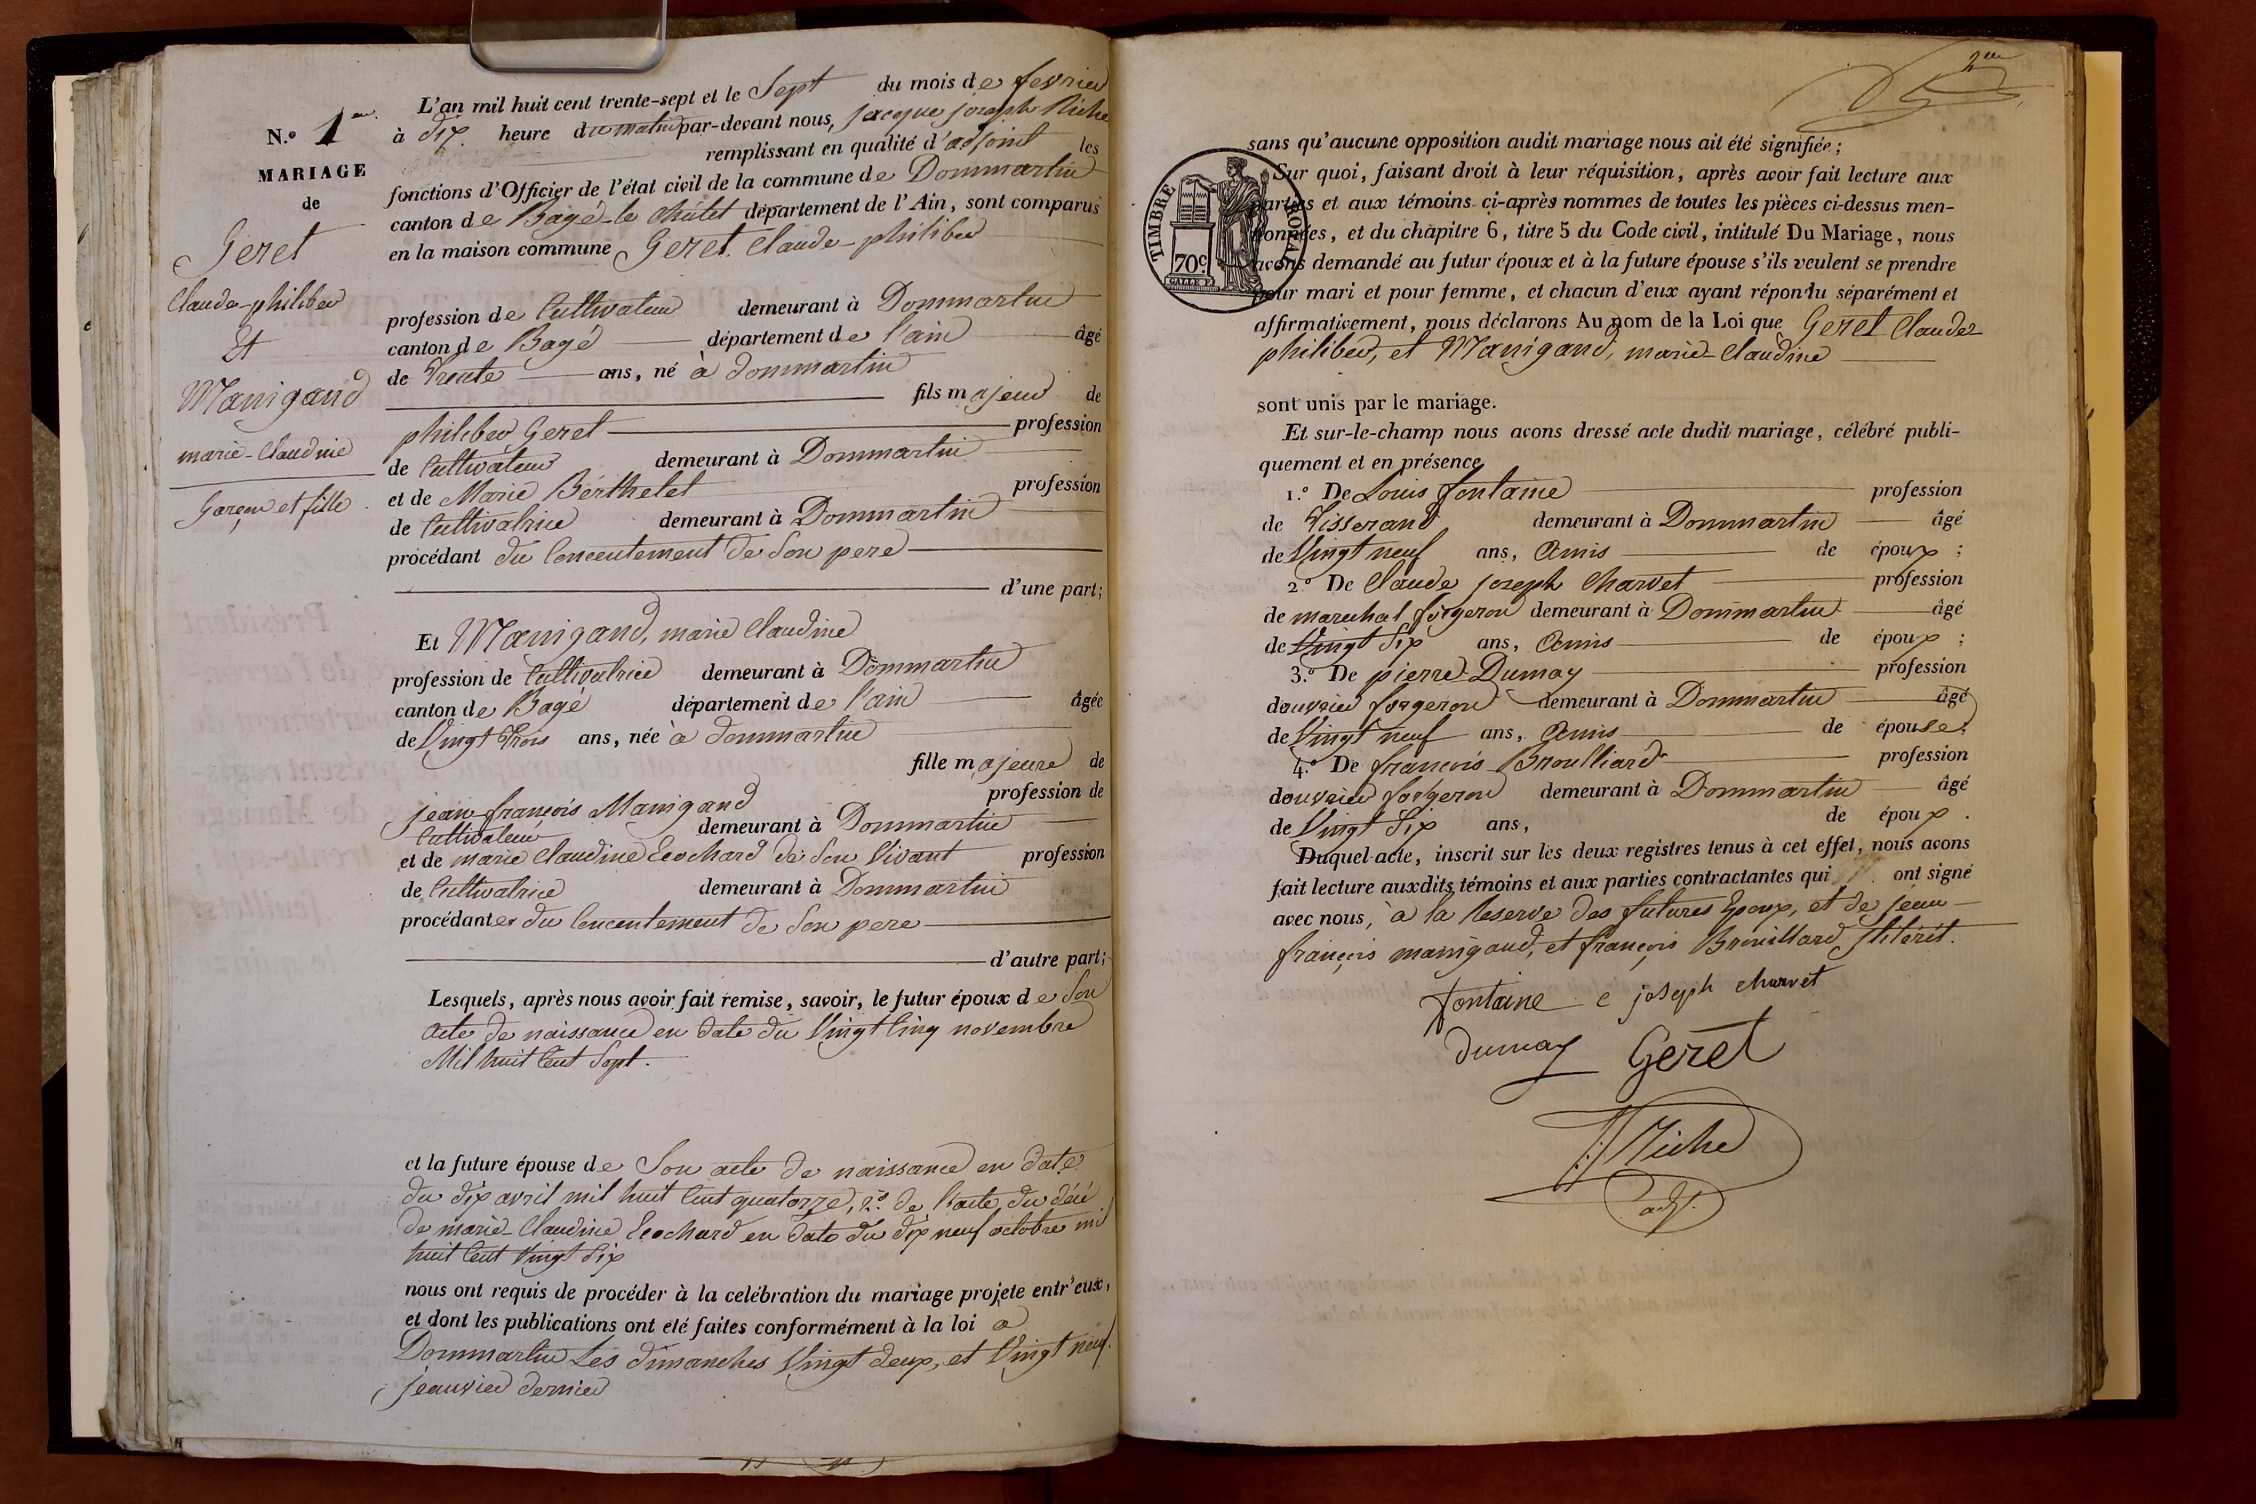 N.º 1er
MARIAGE
de
Geret
Claude-philiber
Et
Manigand
marie-Claudine
Garçon et fille
L'an mil huit cent trente-sept et le Sept du mois de fevrier
à dix heure du matin par-devant nous, jacque joseph Riche
remplissant en qualité d'adjoint les
fonctions d'Officier de l'état civil de la commune de Dommartin
canton de Bagé-le Châtel département de l'Ain, sont comparus
en la maison commune Geret Claude-philiber
profession de Cultivateur demeurant à Dommartin
canton de Bagé département de l'ain âgé
de trente ans, né à dommartin
fils majeur de
philiber Geret profession
de Cultivateur demeurant à Dommartin
et de Marie Berthelet profession
de Cultivatrice demeurant à Dommartin
procédant du Concentement de Son pere
d'une part;
Et Manigand, marie Claudine
profession de Cultivatrice demeurant à Dommartin
canton de Bagé département de l'ain âgée
de Vingt trois ans, née à dommartin
fille majeure de
jean françois Manigand profession de
Cultivateur demeurant à Dommartin
et de marie Claudine Ecochard de Son Vivant profession
de Cultivatrice demeurant à Dommartin
procédante du Concentement de Son pere
d'autre part;
Lesquels, après nous avoir fait remise, savoir, le futur époux de Son
acte de naissance en date du Vingt Cinq novembre
Mil huit Cent Sept.
et la future épouse de Son acte de naissance en date
du dix avril mil huit Cent quatorze, 2º de l'acte du décé
de marie-Claudine Ecochard en date du dix neuf octobre mil
huit Cent Vingt Six
nous ont requis de procéder à la celébration du mariage projete entr'eux,
et dont les publications ont eté faites conformément à la loi a
Dommartin Les dimanches Vingt deux, et Vingt neuf
jeanvier dernier
2me
sans qu'aucune opposition audit mariage nous ait été signifiée;
Sur quoi, faisant droit à leur réquisition, après avoir fait lecture aux
parties et aux témoins ci-après nommes de toutes les pièces ci-dessus men-
tionnées, et du chapitre 6, titre 5 du Code civil, intitulé Du Mariage, nous
avons demandé au futur époux et à la future épouse s'ils veulent se prendre
pour mari et pour femme, et chacun d'eux ayant répondu séparément et
affirmativement, nous déclarons Au nom de la Loi que Geret Claude
philiber, et Manigand, marie-Claudine
TIMBRE ROYAL
70c
sont unis par le mariage.
Et sur-le-champ nous avons dressé acte dudit mariage, célébré publi-
quement et en présence
1.º De Louis fontaine profession
de Tisserand demeurant à Dommartin âgé
de Vingt neuf ans, Amis de époux;
2.º De Claude joseph Charvet profession
de marechal forgeron demeurant à Dommartin âgé
de Vingt Six ans, Amis de époux;
3.º De pierre Dumay profession
douvrier forgeron demeurant à Dommartin âgé
de Vingt neuf ans, Amis de épouse;
4.º De francois Broulliard profession
douvrier forgeron demeurant à Dommartin âgé
de Vingt Six ans, de époux.
Duquel acte, inscrit sur les deux registres tenus à cet effet, nous avons
fait lecture auxdits témoins et aux parties contractantes qui ont signé
avec nous, à la Reserve des futures Epoux, et de jean
françois manigand, et françois Brouillard
fontaine c joseph charvet
dumay Geret
Riche
adj.